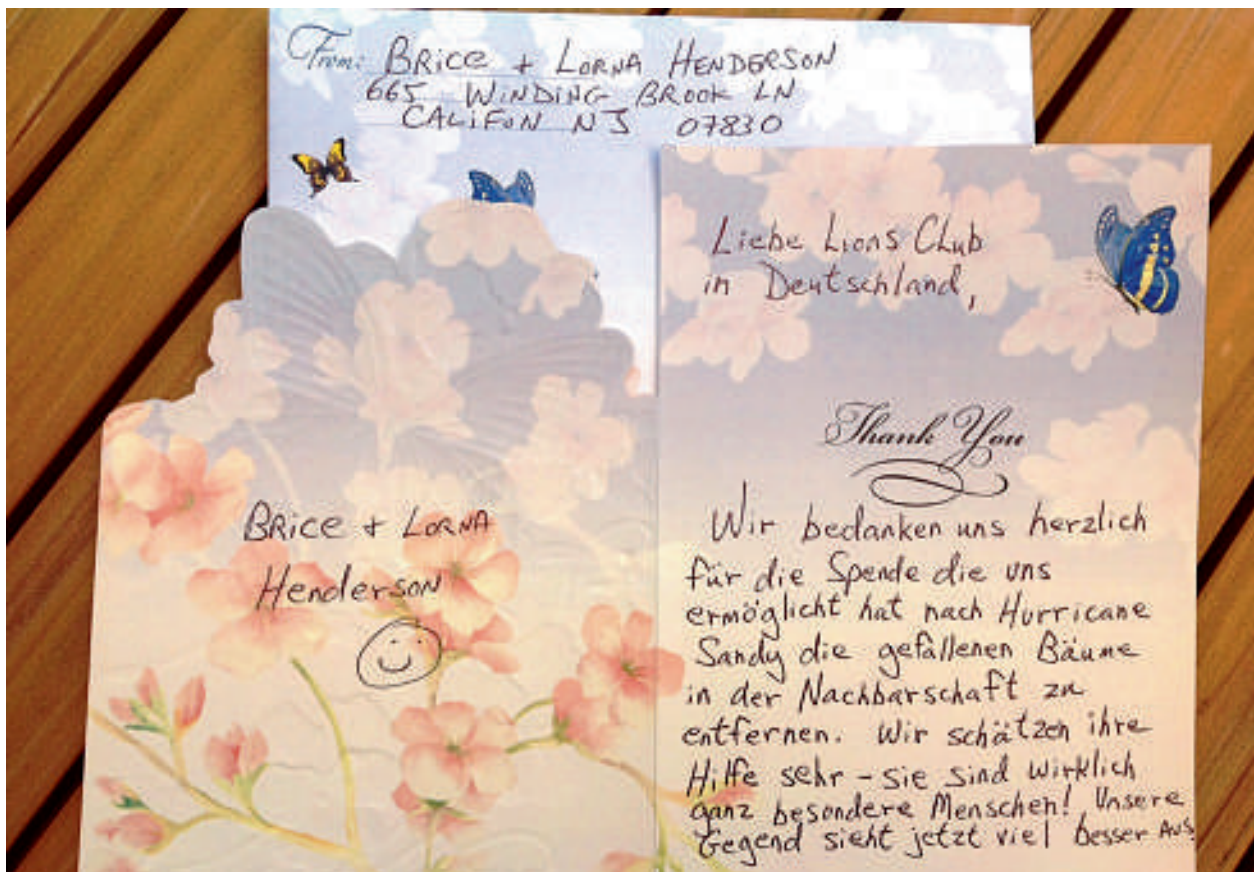 From: BRICE + LORNA HENDERSON
665 WINDING BROOK LN
CALIFON NJ 07830
Liebe Lions Club
in Deutschland,
Thank You
BRICE + LORNA
Henderson
Wir bedanken uns herzlich
für die Spende die uns
ermöglicht hat nach Hurricane
Sandy die gefallenen Bäume
in der Nachbarschaft zu
entfernen. Wir schätzen ihre
Hilfe sehr - sie sind wirklich
ganz besondere Menschen! Unsere
Gegend sieht jetzt viel besser AUS.